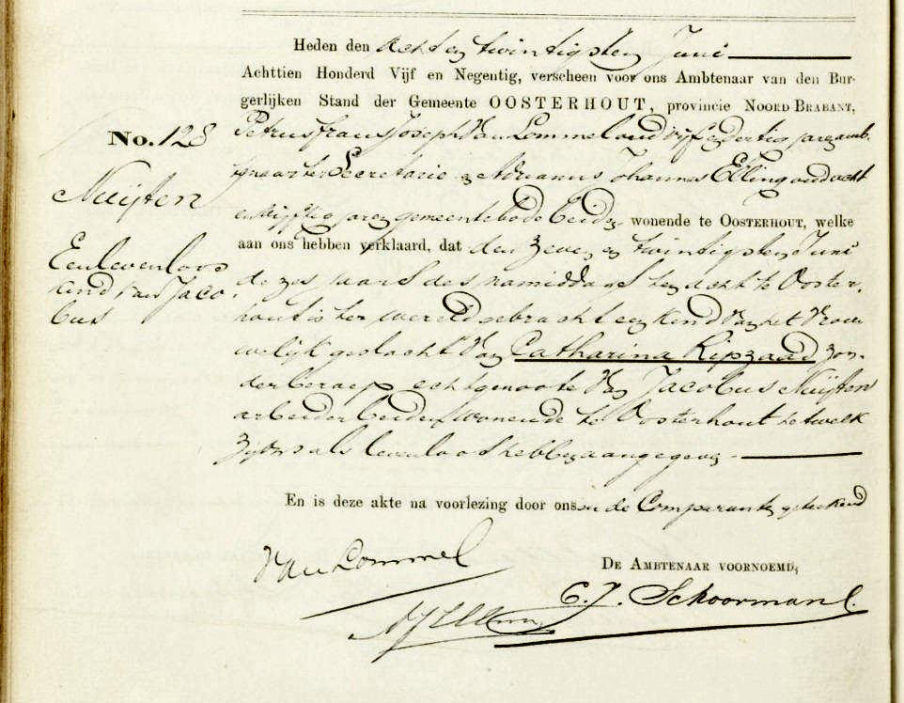 Heden den acht en twintigsten Juni
Achttien Honderd Vijf en Negentig, verscheen voor ons Ambtenaar van den Bur-
gerlijken Stand der Gemeente OOSTERHOUT, provincie NOORD BRABANT,
No. 128
Petrus Frans Joseph Van Lommel oud vijf en dertig jaren amb-
tenaar ter Secretarie en Adrianus Johannes Elling oud acht
Nuijten
en vijftig jaren gemeentebode beiden wonende te OOSTERHOUT, welke
aan ons hebben verklaard, dat den zeven en twintigsten Juni
Een levenloos
kind van Jaco-
bus
dezes jaars des namiddags ten acht te Ooster-
hout is ter wereld gebracht een kind van het vrou-
welijk geslacht van Catharina Ripzaad, zon-
der beroep echtgenoote van Jacobus Nuijten
arbeider beiden wonende te Oosterhout hetwelk
zij ons als levenloos hebben aangegeven
En is deze akte na voorlezing door ons en de Comparanten geteekend
Van Lommel
DE AMBTENAAR VOORNOEMD,
C. J. Schoormans